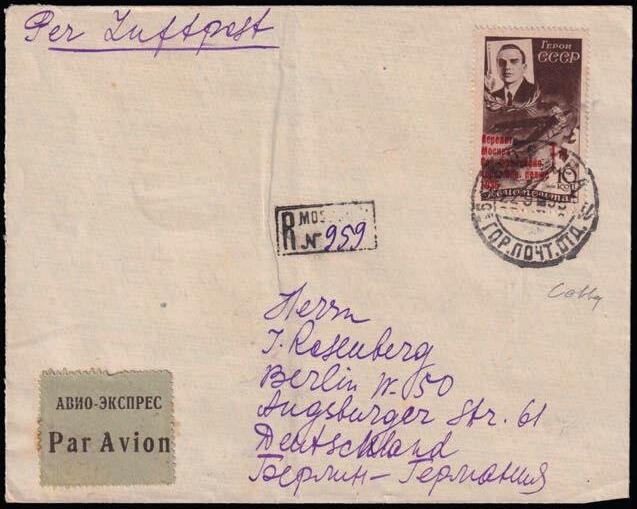 Per Luftpost
Герои
СССР
Перелет
Москва-
1935
10
R
MOS
№ 959
22 9 35
ГОР.ПОЧТ.ОТД.
Herrn
J. Rosenberg
Berlin W. 50
Augsburger Str. 61
Deutschland
Берлин-Германия
АВИО-ЭКСПРЕС
Par Avion